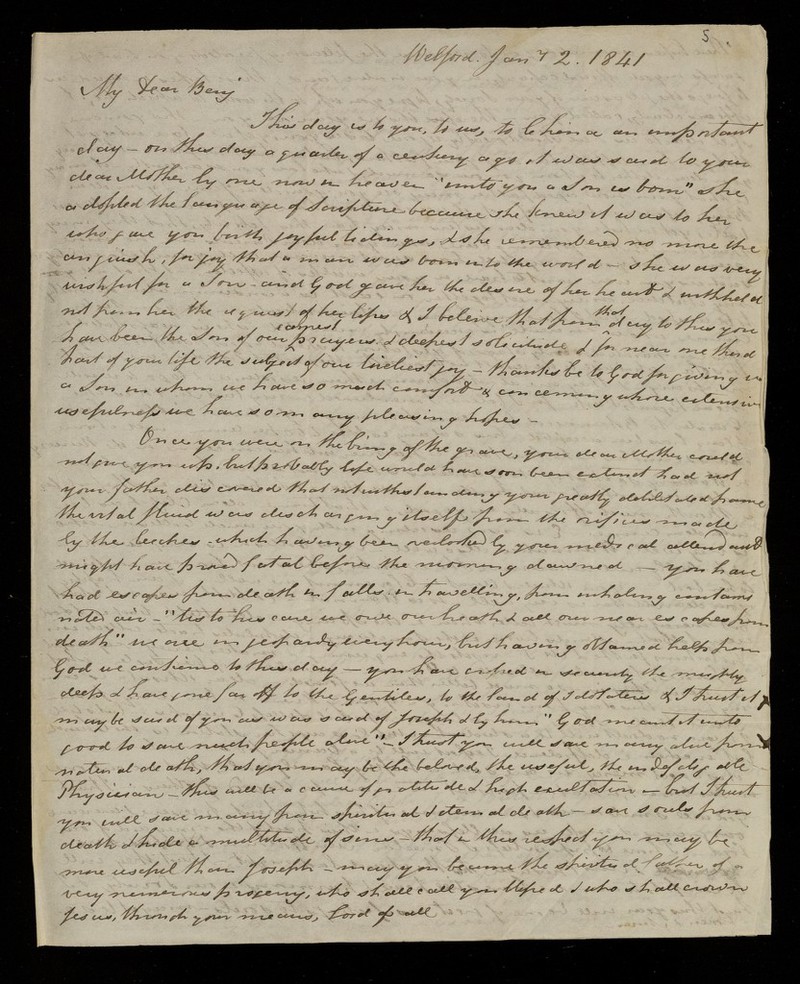 5.
Welford. Jany 2. 1841
My Dear Benj
This day is to you, to us, to China an important
day – on this day a quarter of a century ago it was said to your
dear Mother by one now in heaven "unto you a Son is born" she
adopted the language of Scripture because she knew it was to her
who gave you birth joyful tidings, & she remembered no more the
anguish, for joy that a man was born into the world – she was very
wishful for a Son – and God gave her the desire of her heart & withheld
not from her the request of her lips & I believe that from that day to this you
have been the Son of our earnest prayers & deepest solicitude & for near one third
part of your life the subject of our liveliest joy – thanks be to God for giving us
a Son in whom we have so much comfort & concerning whose extensive
usefulness we have so many pleasing hopes –
Once you were on the brink of the grave, your dear Mother could
not give you up, but probably life would have soon been extinct had not
your father discovered that notwithstanding your greatly debilitated frame
the vital fluid was discharging itself from the orifices made
by the leeches which having been overlooked by your medical attendant
might have proved fatal before the morning dawned – you have
had escapes from death in falls in travelling, from inhaling contami
nated air – "tis to his care we owe our breath, & all our near escapes from
death" we are in jeopardy every hour, but having obtained help from
God we continue to this day – you have crossed in security the mighty
deep & have gone far off to the Gentiles, to the land of Idolaters & I trust it
may be said of you as was said of Joseph & by him "God meant it unto
good to save much people alive" – I trust you will save many alive from
natural death, that you may be the beloved, the useful, the indefatigable
Physician – this will be a cause of gratitude & high exultation – but I trust
you will save many from spiritual & eternal death – save souls from
death & hide a multitude of sins – that in this respect you may be
more useful than Joseph – may you become the spiritual father of a
very numerous progeny, who shall call you blessed & who shall crown
Jesus, through your means, Lord of all